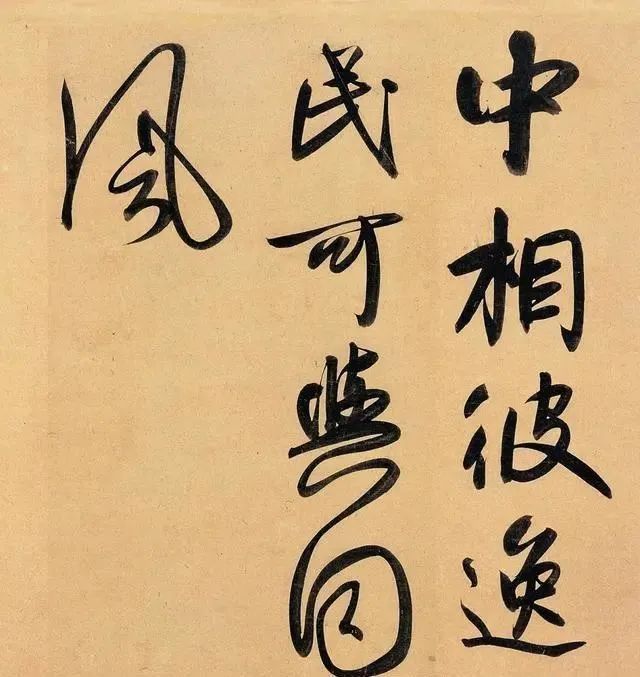 中相彼逸
民可與同
風